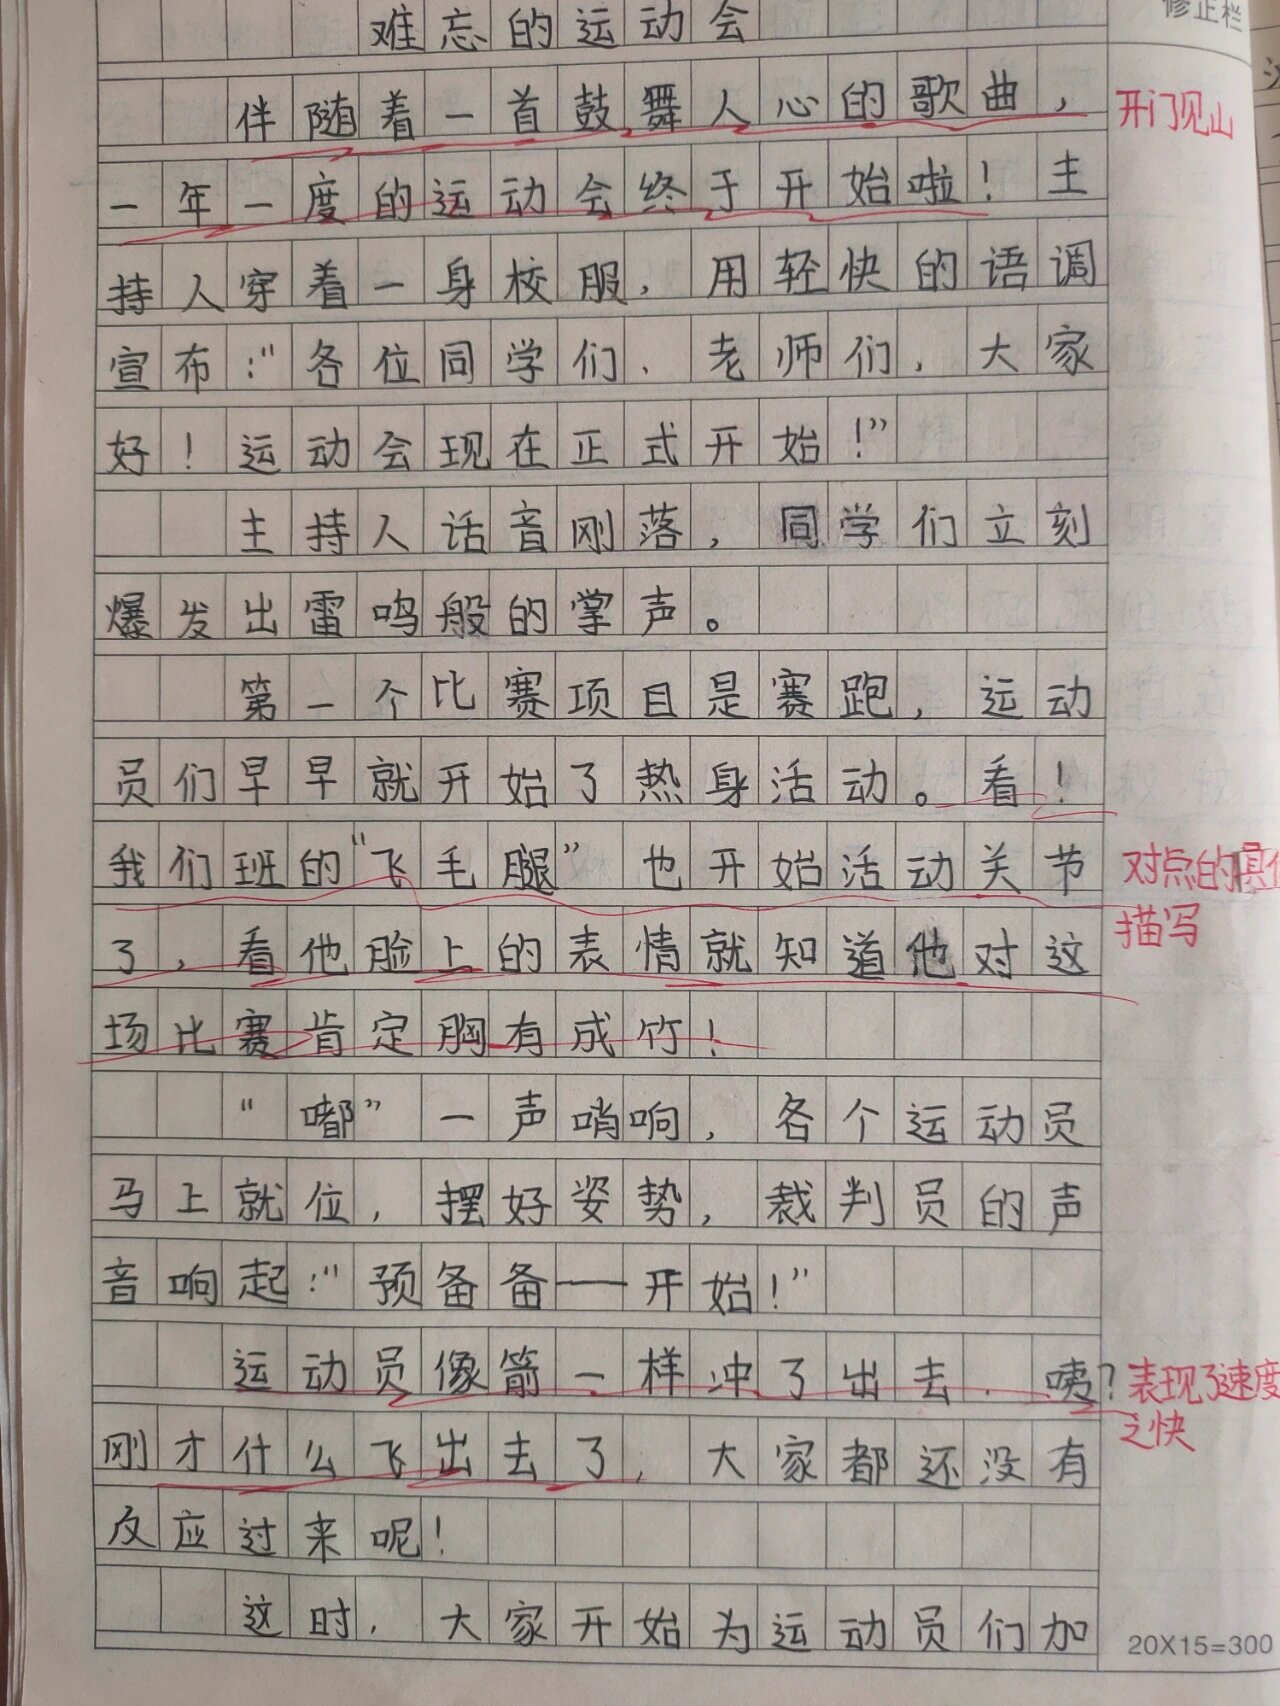 难忘的运动会
修正栏
伴随着一首鼓舞人心的歌曲，
开门见山
一年一度的运动会终于开始啦！主
持人穿着一身校服，用轻快的语调
宣布：“各位同学们、老师们，大家
好！运动会现在正式开始！”
主持人话音刚落，同学们立刻
爆发出雷鸣般的掌声。
第一个比赛项目是赛跑，运动
员们早早就开始了热身活动。看！
我们班的“飞毛腿”也开始活动关节
对点的具体
描写
了，看他脸上的表情就知道他对这
场比赛肯定胸有成竹！
“嘟”一声哨响，各个运动员
马上就位，摆好姿势，裁判员的声
音响起：“预备备——开始！”
运动员像箭一样冲了出去．咦？
表现了速度
之快
刚才什么飞出去了，大家都还没有
反应过来呢！
这时，大家开始为运动员们加
20X15=300